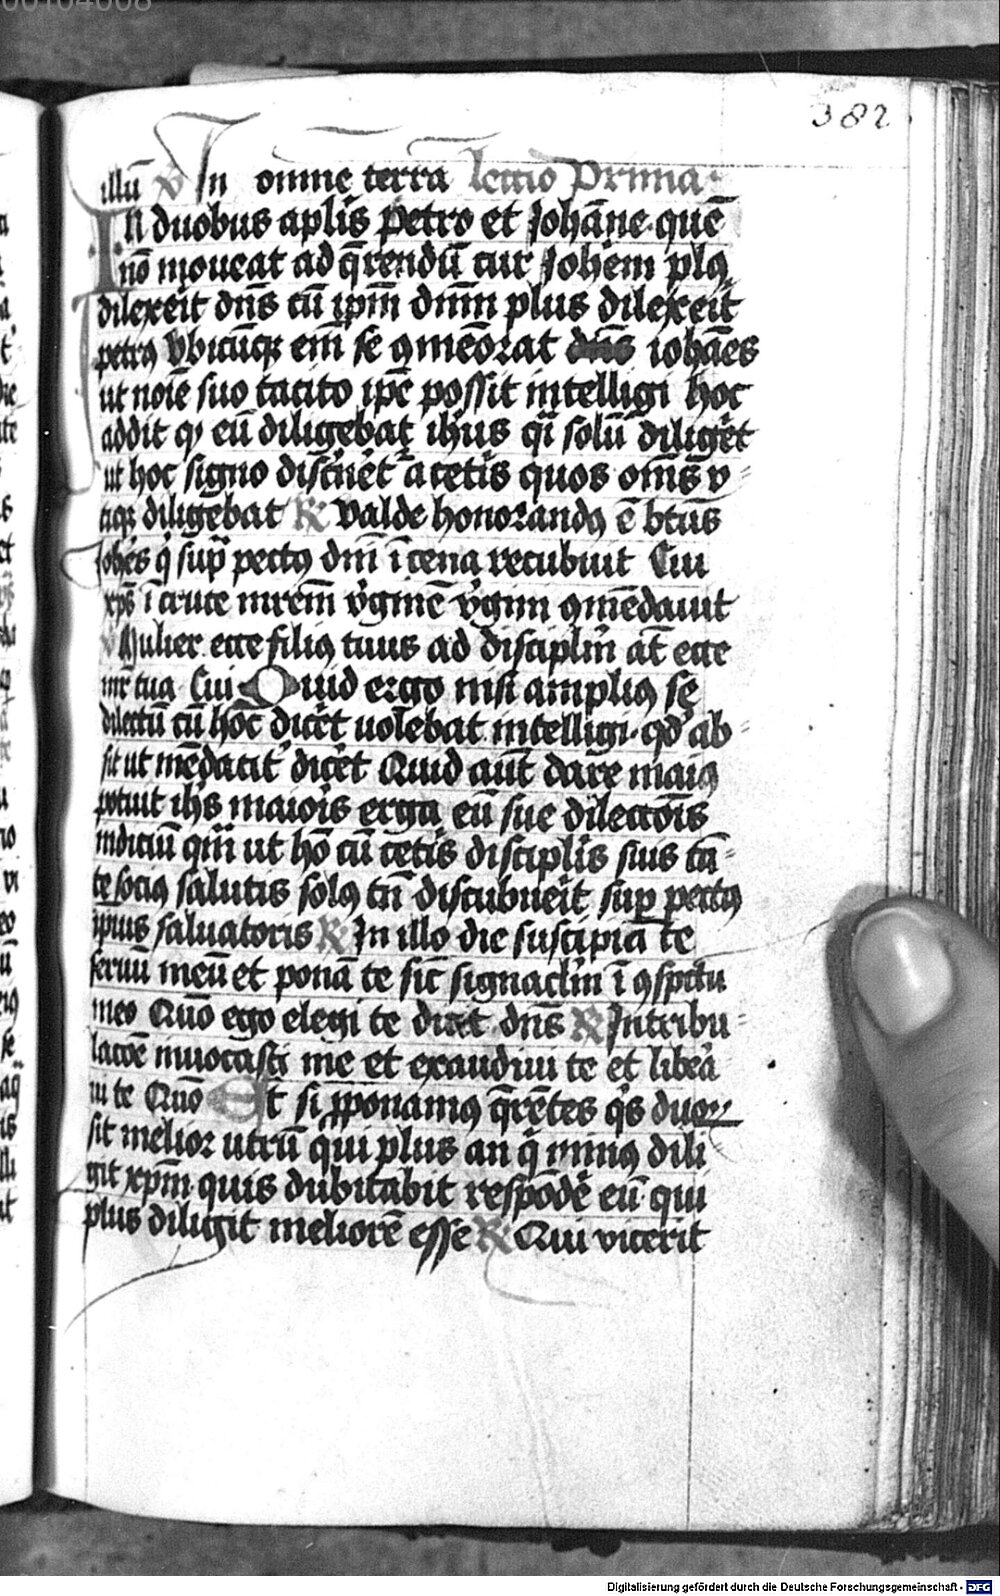 382
illū v In omnē terrā lectio Prima
In duobus aplīs Petro et Johāne quē
nō moueat ad q̄rendū cur Johēm plꝯ
dilexeit dn̄s cū ipm̄ dn̄m plus dilexeit
petrꝯ Vbicūqꝫ em̄ se ꝯmēorat dn̄s iohāes
ut noīe suo tacito ipē possit intelligi hoc
addit qꝫ eū diligebat ihūs q̄i solū diliget
ut hoc signo discn̄et a cetis quos om̄s v
tiqꝫ diligebat ℟ Valde honorandꝯ ē btūs
Johēs q̇ sup̄ pectꝯ dn̄i ī cena recubuit Cui
xp̄s ī cruce mrēm v̓ginē v̓gini ꝯmēdauit
v Mulier ecce filiꝯ tuus ad disciplīn at̄ ecce
mr̄ tua Cui Quid ergo nisi ampliꝯ se
dilectū cū hōc dicet uolebat intelligi qd̓ ab
sit ut mēdacit̓ dicet Quid aūt dare maiꝯ
potuit ihs̄ maiois erga eū sue dilectōis
indiciū qm̄ ut hō cū cetis discipl̄is suis tā
te sociꝯ salutis solꝯ tn̄ discubueit sup pectꝯ
ipius saluatoris ℟ In illo die suscipiā te
seruū meū et ponā te sic̄ signacl̄m ī ꝯspc̄tu
meo Quō ego elegi te dicit dn̄s ℟ In tribu
lacōe inuocasti me et exaudiui te et libea
ui te Quō Et si ꝓponamꝯ q̄rētes q̇s duoꝝ
sit melior utrū qui plus an q̇ minꝯ dili
git xp̄m quis dubitabit respōdē eū qui
plus diligit meliorē esse ℟ Qui vicerit
Digitalisierung gefördert durch die Deutsche Forschungsgemeinschaft - DFG